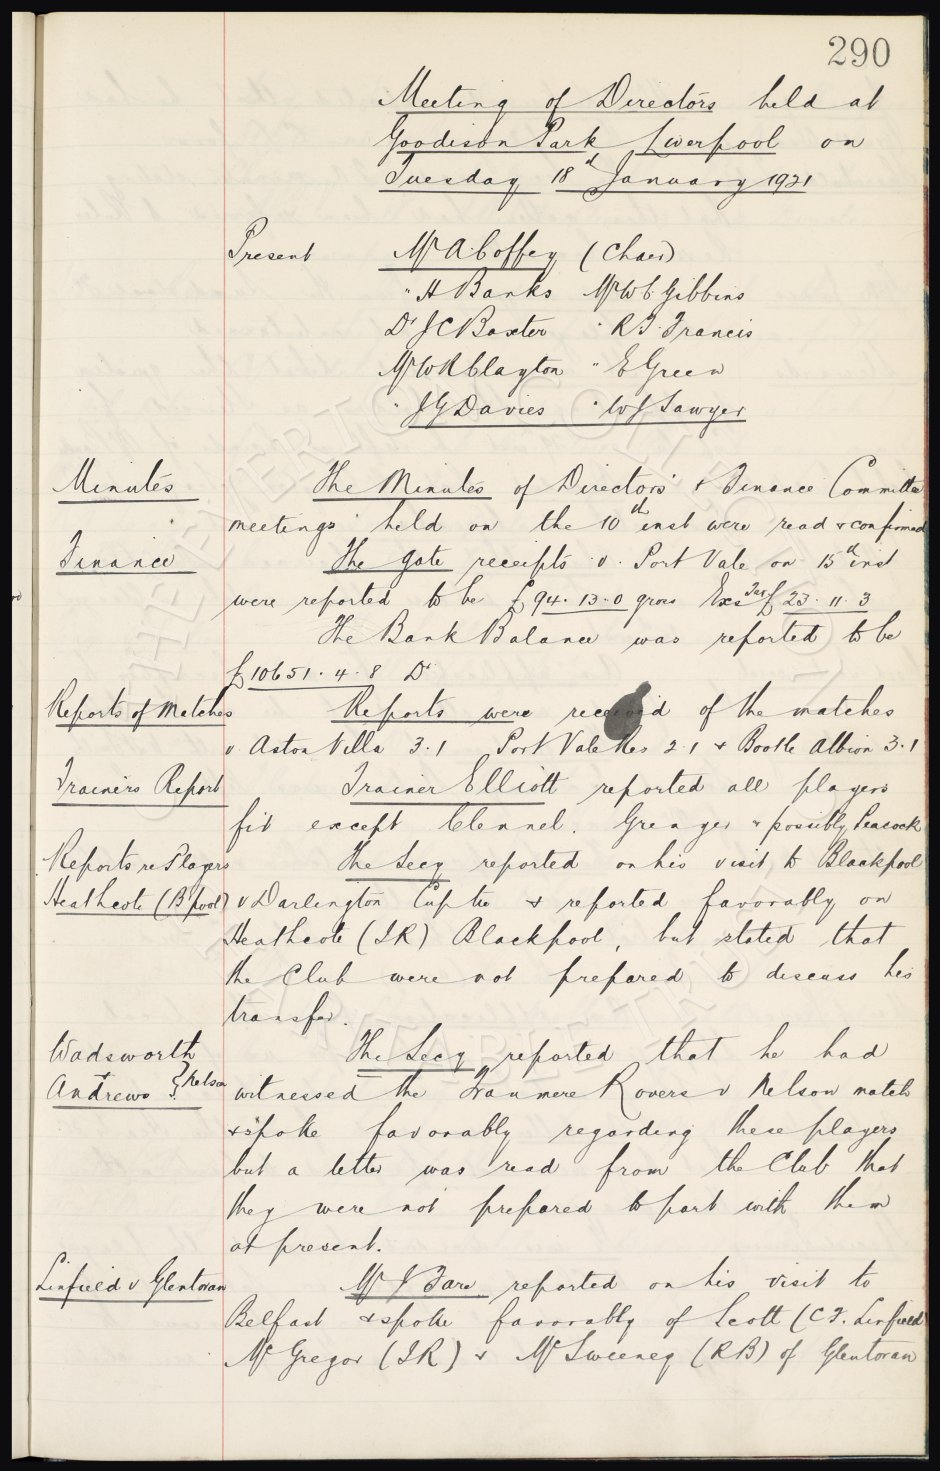 290
Meeting of Directors held at
Goodison Park Liverpool on
Tuesday 18th January 1921
Present Mr A Coffey (Chair)
" H Banks Mr W C Gibbins
Dr J C Baxter " R T Francis
Mr W R Clayton " E Green
" J G Davies " W J Sawyer
Minutes The Minutes of Directors & Finance Committee
meetings held on the 10th inst were read & confirmed
Finance The gate receipts v. Port Vale on 15th inst
were reported to be £94.13.0 gross Exs £23.11.3
The Bank Balance was reported to be
£10651.4.8 Dr
Reports of Matches Reports were received of the matches
v Aston Villa 3.1 Port Vale Res 2.1 & Bootle Albion 3.1
Trainers Report Trainer Elliott reported all players
fit except Clennel. Grenyer & possibly Peacock
Reports re Players The Secy reported on his visit to Blackpool
Heathcote (B'pool) v Darlington Cup tie & reported favorably on
Heathcote (I R) Blackpool, but stated that
the Club were not prepared to discuss his
transfer.
Wadsworth The Secy reported that he had
& Andrews } Nelson witnessed the Tranmere Rovers v Nelson match
& spoke favorably regarding these players
but a letter was read from the Club that
they were not prepared to part with them
at present.
Linfield v Glentoran Mr J Fare reported on his visit to
Belfast & spoke favorably of Scott (C F. Linfield)
McGregor (I R) & McSweeney (R B) of Glentoran